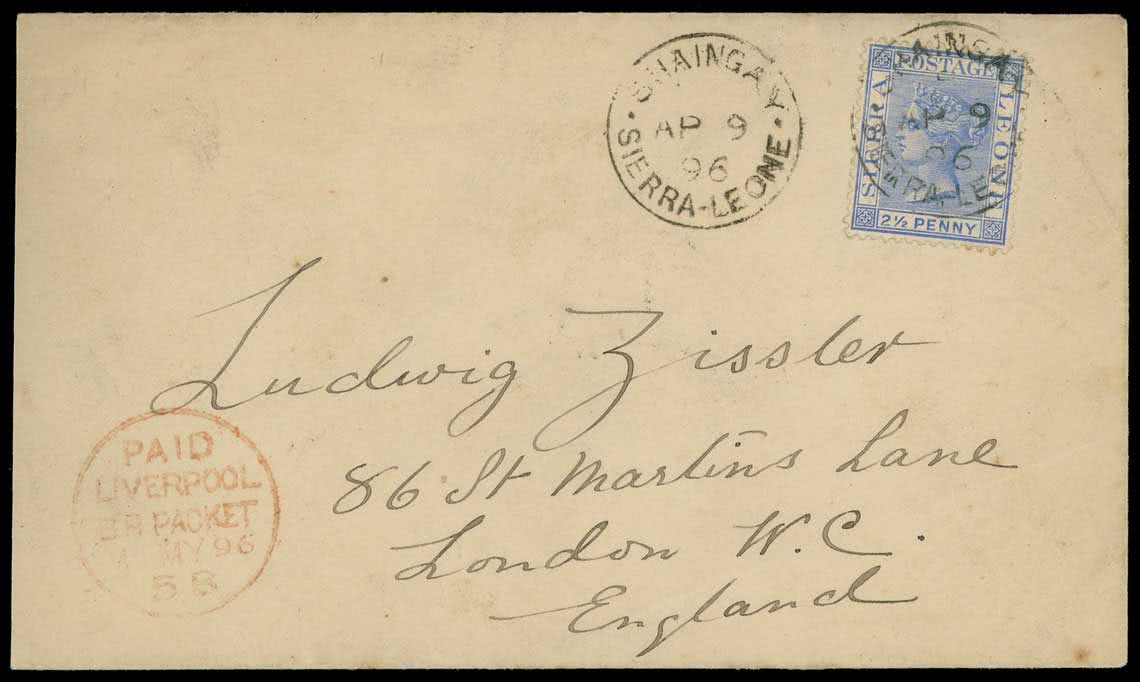 SHAINGAY
AP 9
96
SIERRA-LEONE
AP 9
96
RRA-LE
POSTAGE
SIERRA
LEONE
2½ PENNY
Ludwig Zissler
86 St Martins Lane
London W.C.
England
PAID
LIVERPOOL
BR PACKET
MY 96
5 B